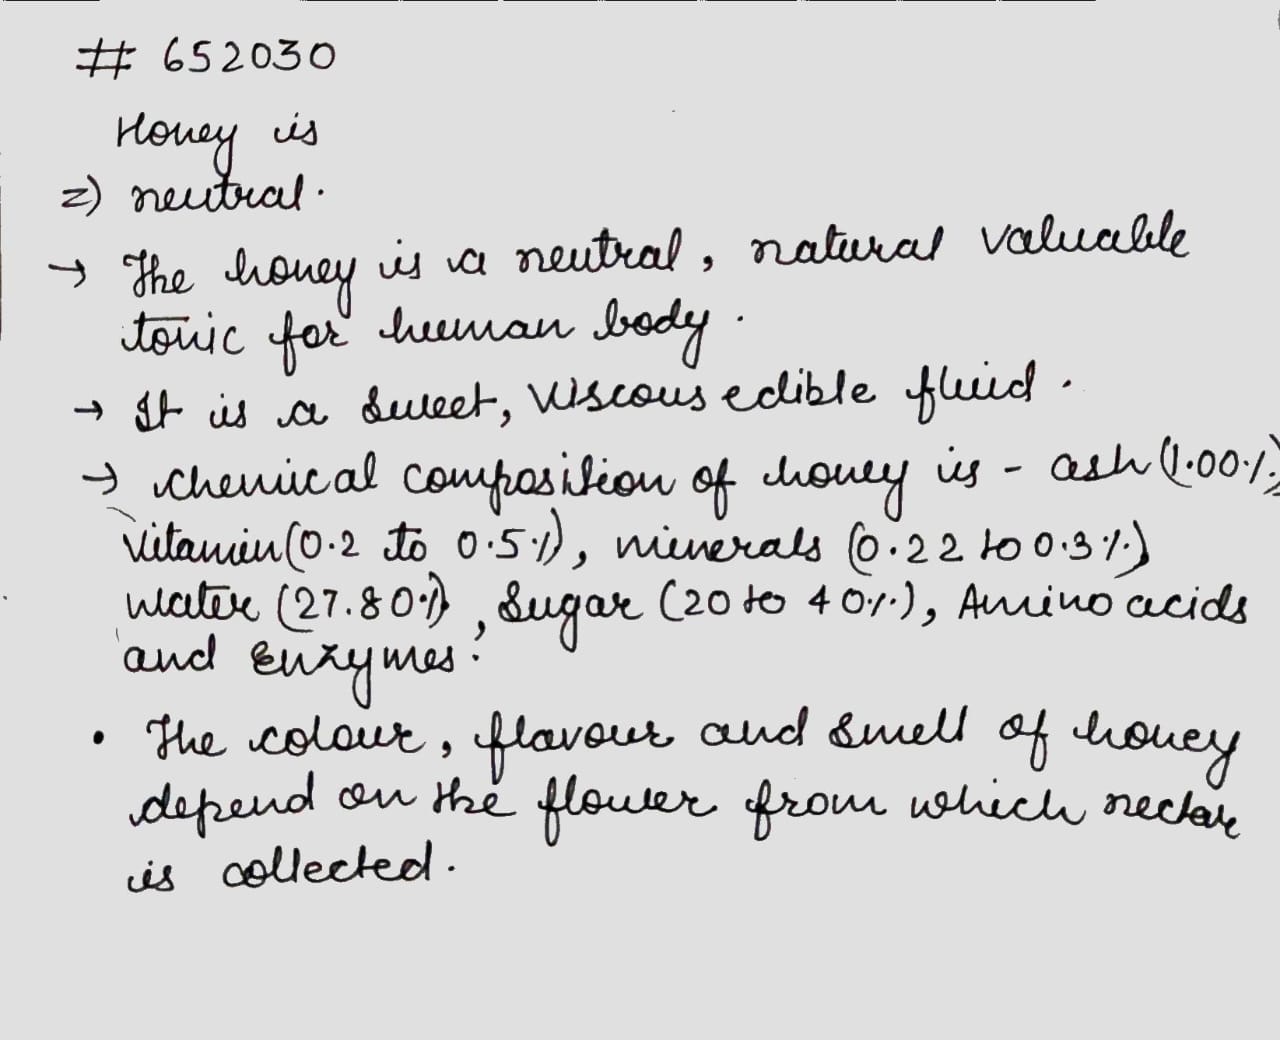 # 652030
Honey is
2) neutral.
→ The honey is a neutral, natural valuable
tonic for human body.
→ It is a sweet, viscous edible fluid.
→ chemical composition of honey is - ash (1.00%),
Vitamin (0.2 to 0.5%), minerals (0.22 to 0.3%)
water (27.80%), Sugar (20 to 40%), Amino acids
and Enzymes.
• The colour, flavour and smell of honey
depend on the flower from which nectar
is collected.